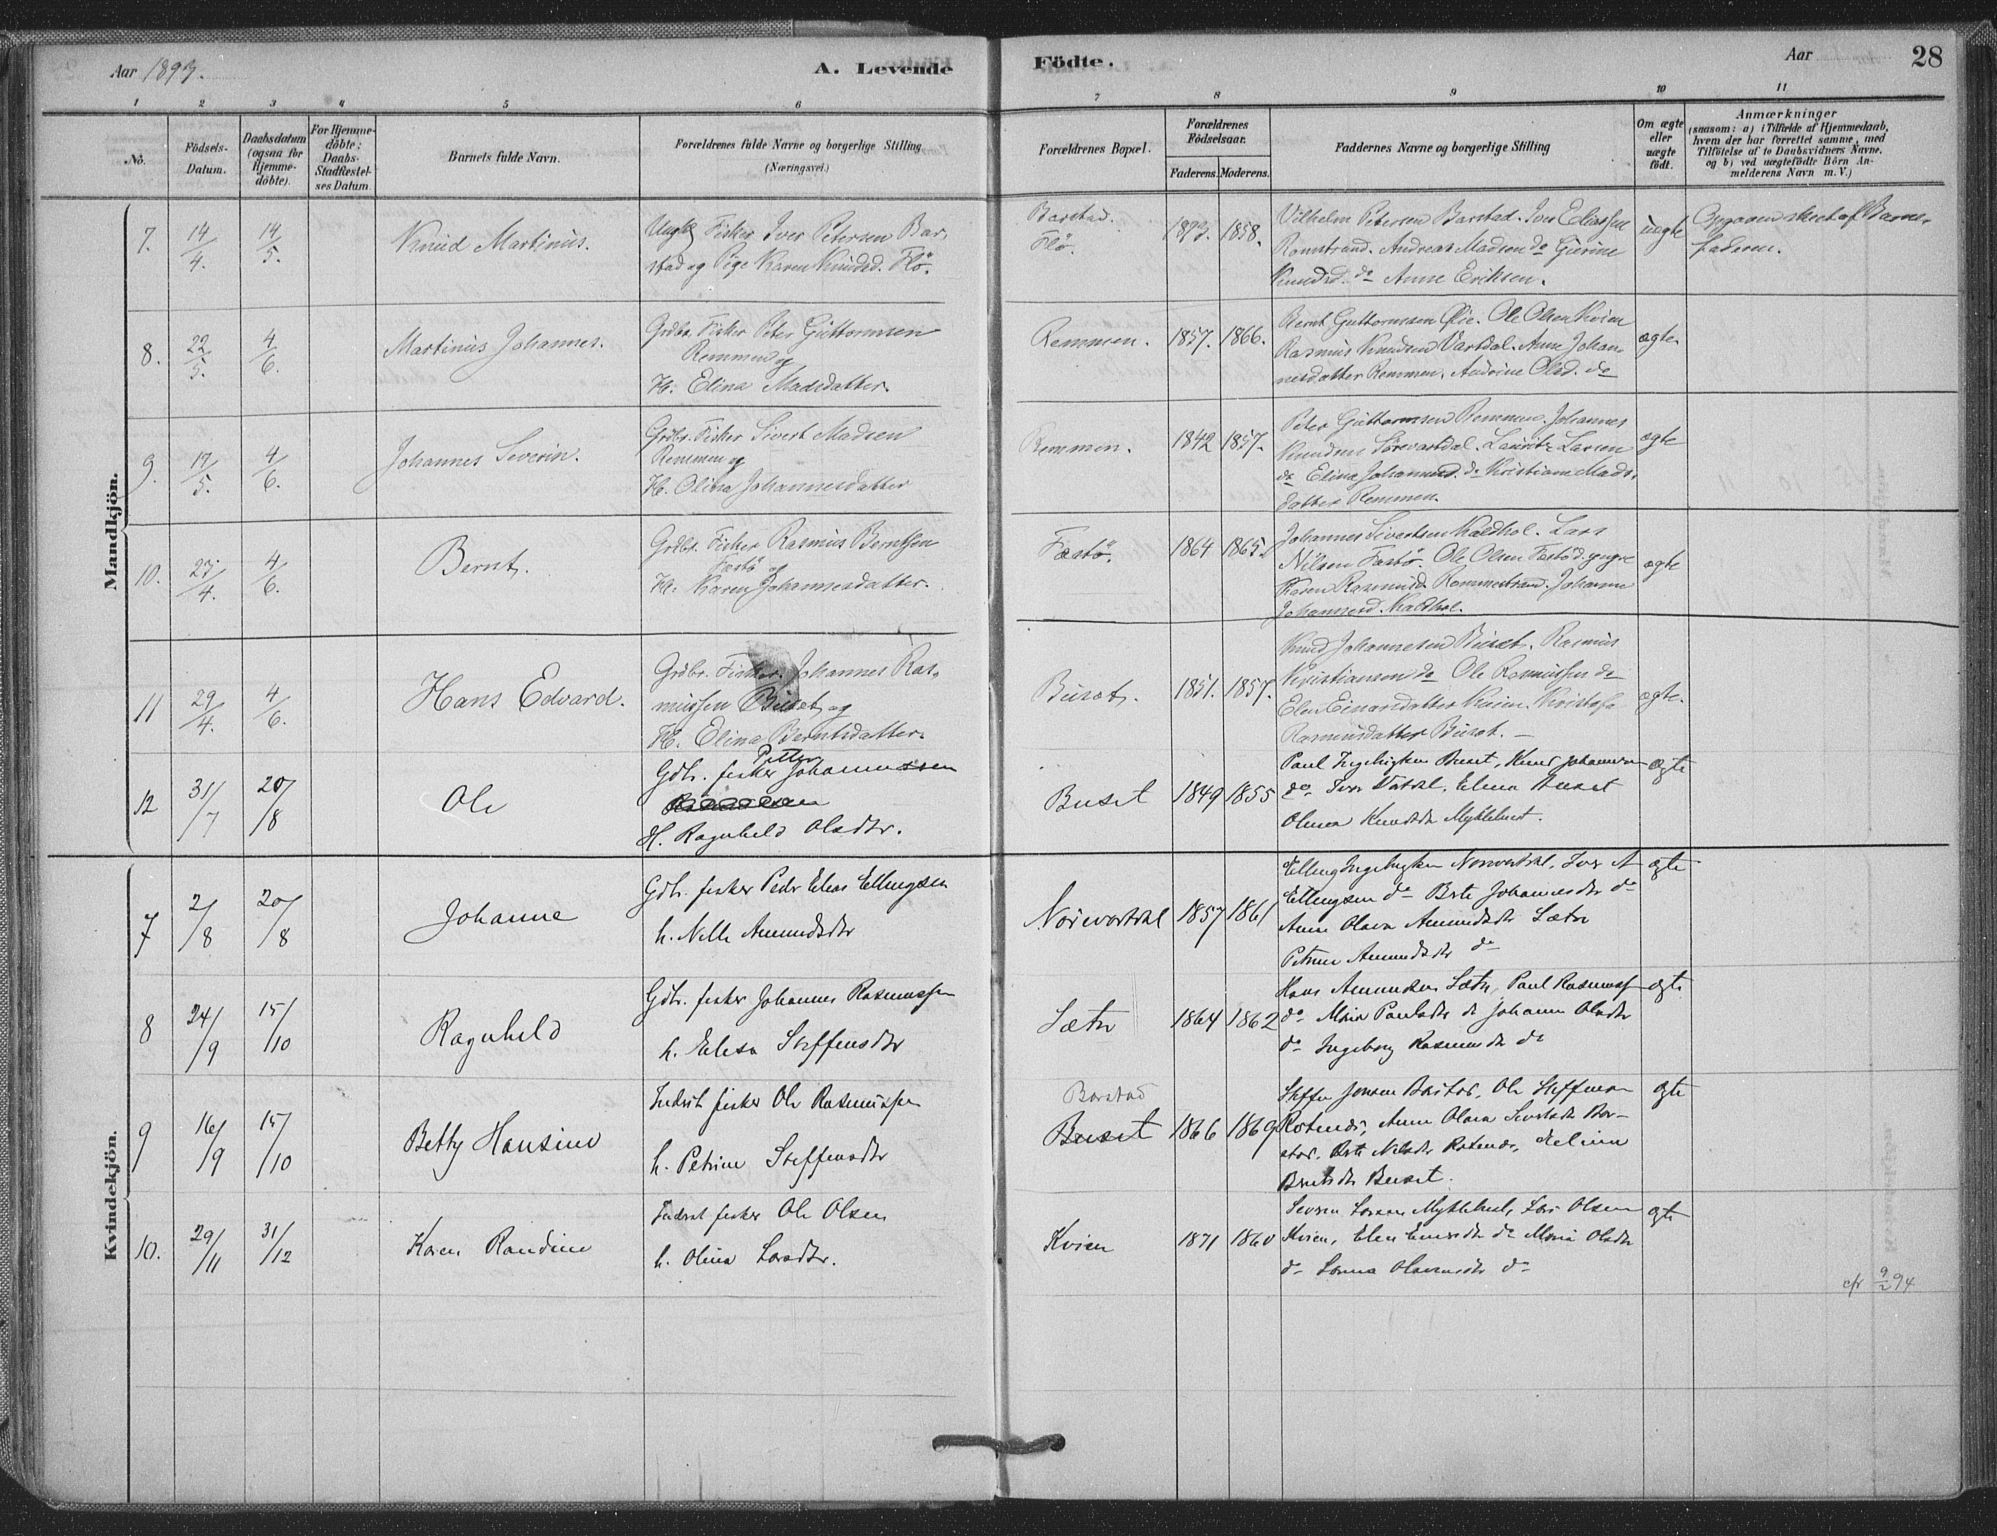 Aar 1893.
A. Levende
Födte.
Aar
28
1 2 3 4 5 6 7 8 9 10 11
No.
Födsels-
Datum.
Daabsdatum
(ogsaa for
Hjemme-
döbte).
For Hjemme-
döbte:
Daabs-
Stadfæstel-
ses Datum.
Barnets fulde Navn.
Forældrenes fulde Navne og borgerlige Stilling
(Næringsvei.)
Forældrenes Bopæl.
Forældrenes
Födselsaar.
Faderens. Moderens.
Faddernes Navne og borgerlige Stilling
Om ægte
eller
uægte
födt.
Anmærkninger
(saasom: a) i Tilfælde af Hjemmedaab,
hvem der har forrettet samme, med
Tilföielse af to Daabsvidners Navne,
og b) ved uægtefödte Börn An-
melderens Navn m. V.)
Mandkjön.
7. 14/4. 14/5. Knud Martinus.
Ungk. Fisker Iver Petersen Bar-
stad og Pige Karen Knudsd. Flö.
Barstad.
Flö.
1858.
Vilhelm Petersen Barstad. Iver Eliassen
Romstrand. Andreas Madsen do Gurine
Knudsd. do Anne Eriksen.
uægte
Opgaven skeet af Barne-
faderen.
8. 22/5. 4/6. Martinus Johannes.
Grdbr. Fisker Peter Guttormsen
Remmen og
H. Elina Madsdatter.
Remmen. 1857. 1866.
Bernt Guttormsen Ole Olsen Kvien
Rasmus Knudsen Vartdal. Anne Johan-
nesdatter Remmen. Olsd. do
ægte.
9. 17/5. 4/6. Johannes Severin.
Grdbr. Fisker Sivert Madsen
Remmen og
H. Olina Johannesdatter
Remmen. 1842 1857.
Peter Guttormsen Remmen. Johannes
Knudsen Sörevartdal. Lauritz Larsen
do Elina Johannesd. do Kristiane Mads-
datter Remmen.
ægte
10. 27/4. 4/6. Bernt.
Grdbr. Fisker Rasmus Berntsen
Fastö og
H. Karen Johannesdatter.
Fastö. 1864 1865.
Johannes Sivertsen Kaldhol. Lars
Nilsen Fastö. Ole Olsen Fastö d. yngre
Karen Rasmusd. Romestrand. Johanne
Johannesd. Kaldhol.
ægte
11 29/4. 4/6. Hans Edvard.
Grdbr. Fisker. Johannes Ras-
mussen Buset og
H. Elina Berntsdatter.
Buset. 1851. 1857.
Knud Johannesen Buset. Rasmus
Kristiansen do Ole Rasmussen do
Elen Einarsdatter Kvien. Kristofa
Rasmusdatter Buset. —
ægte.
12 31/7 20/8 Ole
Petter
Gdbr. fisker Johannessen
H. Ragnhild Olsdtr.
Buset 1849 1855
Paul Ingebrigtsen Buset, Knud Johannesen
do Iver Vartdal, Elena Buset
Olina Knudsdtr Myklebust.
ægte
Kvindekjön.
7 2/8 20/8 Johanne
Gdbr. fisker Peder Elias Ellingsen
h. Nelle Amundsdtr
Nörevartdal 1857 1861
Elling Ingebrigtsen Nörevartdal, Iver A
Ellingsen do Brte Johannesdtr do
Anne Olava Amundsdtr Sætre
Petrine Amundsdtr do
ægte
8 24/9 15/10 Ragnhild
Gdbr. fisker Johannes Rasmussen
h. Elisa Steffensdtr
Sætre 1864 1862
Hans Amundsen Sætre, Paul Rasmussen
do Maria Paulsdtr do Johanne Olsdtr
do Ingeborg Rasmusdtr do
ægte
9 16/9 15/10 Betty Hansine
Inderst fisker Ole Rasmussen
h. Petrine Steffensdtr
Barstad
Buset 1866 1869
Steffen Jonsen Barstad, Ole Steffensen
Rotend, Anne Olava Bar-
stad. Brte Nilsdtr Rotend, Elina
Berntsdtr Buset.
ægte
10. 29/11 31/12 Karen Randine
Inderst fisker Ole Olsen
h. Olina Larsdtr.
Kvien 1871 1860
Larsen Myklebust, Lars Olsen
Kvien, Elen Einarsdtr do Maria Olsdtr
do do
ægte
cfr 9/2 94